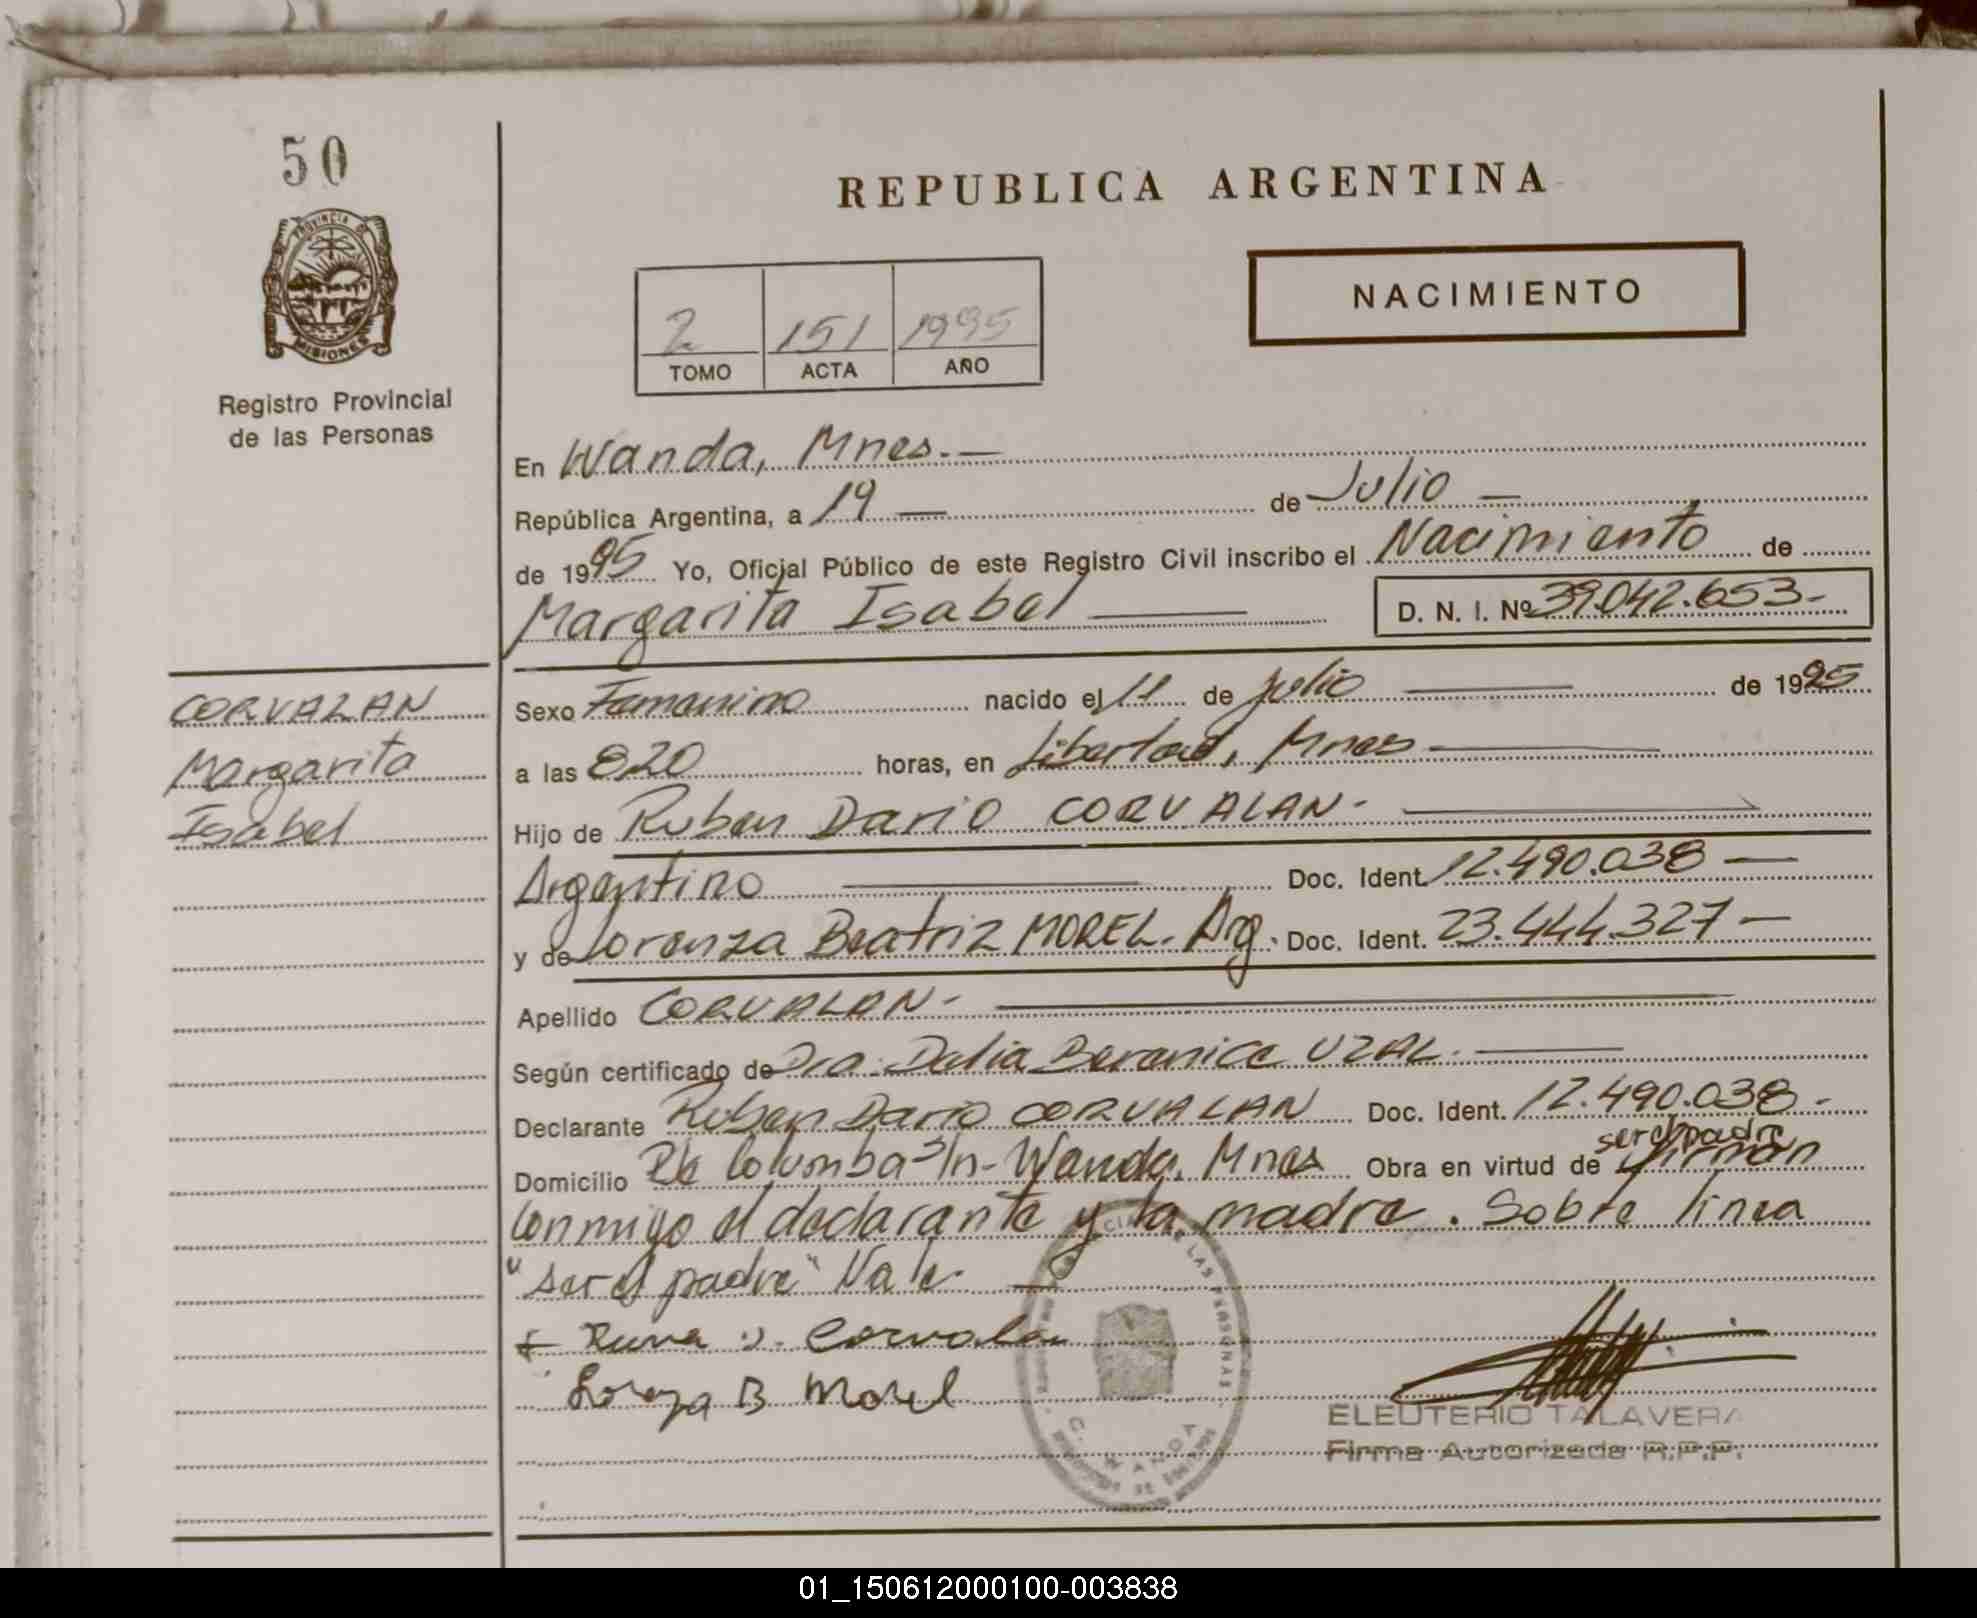 50
PROVINCIA DE
MISIONES
Registro Provincial
de las Personas
REPUBLICA ARGENTINA
NACIMIENTO
2 151 1995
TOMO ACTA AÑO
En Wanda, Mnes.-
República Argentina, a 19 de Julio
de 1995 Yo, Oficial Público de este Registro Civil inscribo el Nacimiento de
Margarita Isabel D. N. I. Nº 39.042.653-
CORVALAN
Margarita
Isabel
Sexo Femenino nacido el 11 de julio de 1995
a las 8,20 horas, en Libertad, Mnes
Hijo de Ruben Dario CORVALAN-
Argentino Doc. Ident. 12.490.038
y de Lorenza Beatriz MOREL. Arg. Doc. Ident. 23.444.327
Apellido CORVALAN-
Según certificado de Dra. Delia Berenice UZAL.
Declarante Ruben Dario CORVALAN Doc. Ident. 12.490.038-
ser el padre
Domicilio Columba S/n- Wanda, Mnes Obra en virtud de firman
conmigo el declarante y la madre. Sobre línea
"ser el padre" Vale
Corvalan
B Morel
LAS PERSONAS
WANDA
ELEUTERIO TALAVERA
Firma Autorizada R.P.P.
01_150612000100-003838